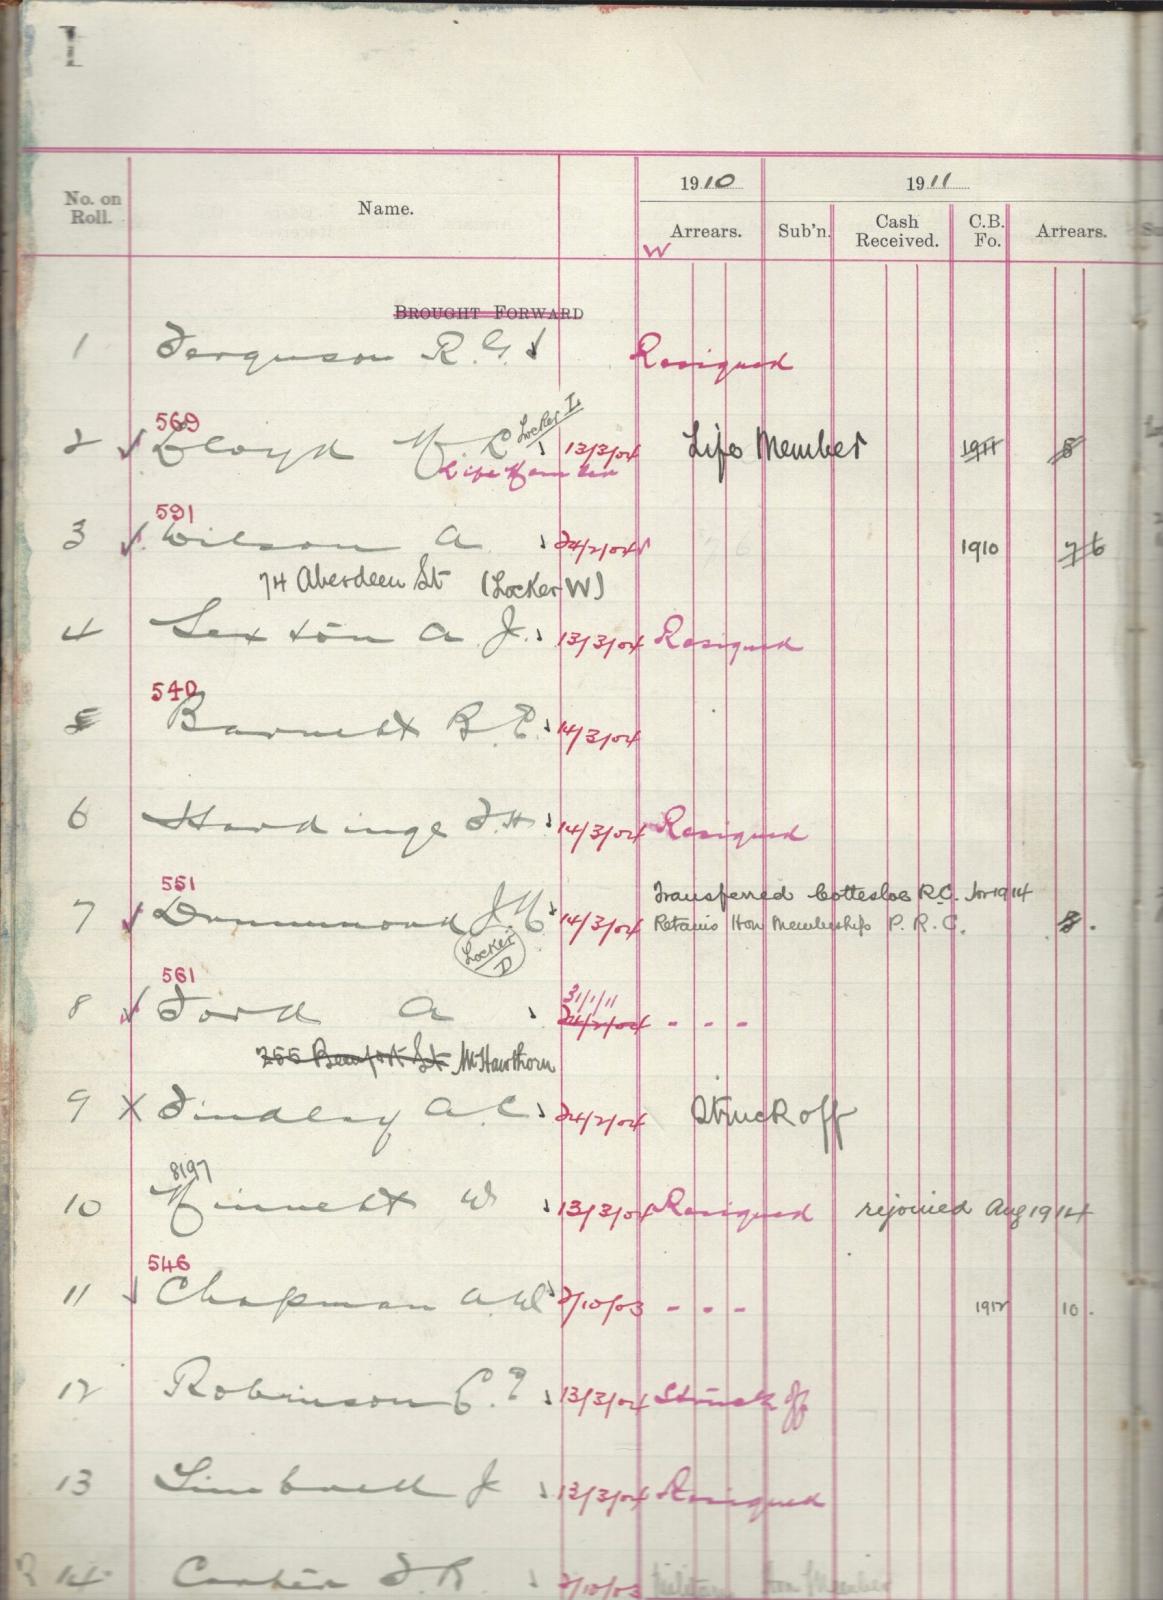 1
1910 1911
No. on Roll. Name. Arrears. Sub'n. Cash Received. C.B. Fo. Arrears.
W
BROUGHT FORWARD
1 Ferguson R. G. Resigned
569 Locker L
2 Lloyd W. R. 13/3/04 Life Member 1911 8
Life Member
591
3 Wilson A 24/2/04 1910 7 6
74 Aberdeen St (Locker W)
4 Sexton A J. 13/3/04 Resigned
540
5 Barnett B. E. 14/3/04
6 Hardinge F. H. 14/3/04 Resigned
Transferred Cottesloe R.C. Jr 1914
551
7 Drummond J. 14/3/04 Retains Hon Membership P. R. C.
Locker D
561
31/1/11
8 Ford A 24/2/04 - - -
255 Beaufort St Mt Hawthorn
9 X Findlay A. C. 24/2/04 Struck off
8197
10 W 13/3/04 Resigned rejoined Aug 1914
546
11 Chapman A. W. 2/10/03 - - - 1912 10.
12 Robinson 13/3/04 Struck off
13 J 13/3/04 Resigned
14 Carter F. R. 2/10/03 Military Hon Member